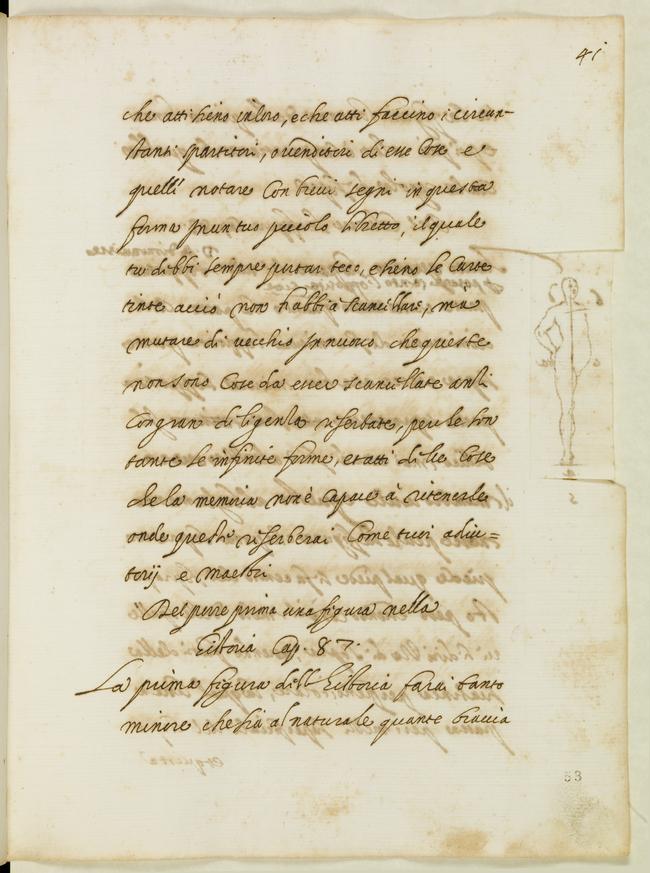 41
che atti sieno in loro, e che atti faccino i circun-
stanti spartitori, o venditori di esse Cose e
quelli notare con brevi segni in questa
forma in un tuo piccolo libretto, il quale
tu debbi sempre portar teco, e sieno le Carte
tinte acciò non l'habbi à scancellare, ma
mutare di vecchio in nuovo che queste
non sono Cose da esser scancellate anzi
Con gran diligenza riserbate, perche son
tante le infinite forme, et atti delle Cose
che la memoria non è capace à ritenerle
onde queste riserberai Come tuoi adiu=
torij e maestri
Del porre prima una figura nella
historia Cap. 87.
La prima figura dell historia farai tanto
minore che sia al naturale quante braccia
53